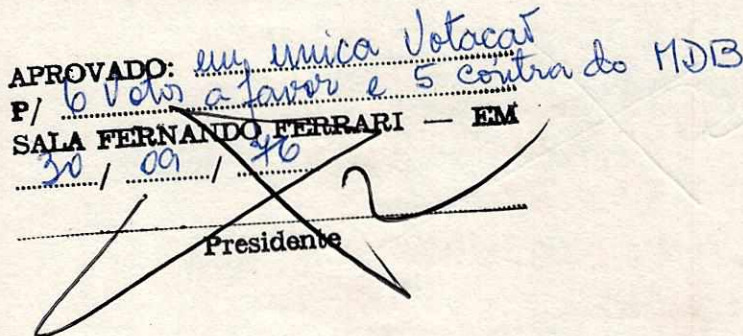 APROVADO: em unica Votacaō
P/ 6 Votos a favor e 5 contra do MDB
SALA FERNANDO FERRARI — EM
30 / 09 / 76
Presidente